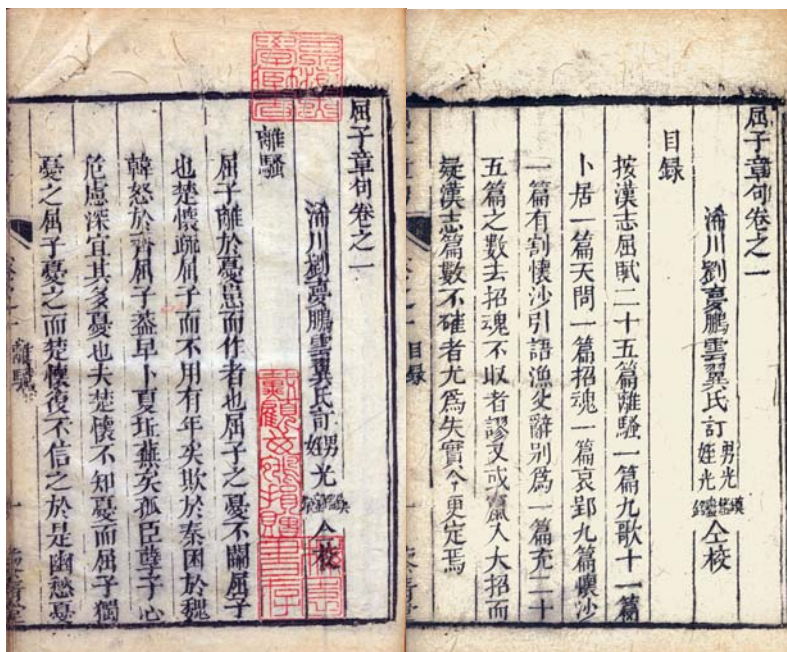 屈子章句卷之一
淯川劉夢鵬雲翼氏訂 男光 姪光 仝校
目録
按漢志屈賦二十五篇離騷一篇九歌十一篇
卜居一篇天問一篇招魂一篇哀郢九篇懷沙
一篇有割懷沙引語漁父辭别爲一篇充二十
五篇之數去招魂不収者謬又或竄入大招而
疑漢志篇數不確者尤爲失實今更定焉
目録
屈子章句卷之一
淯川劉夢鵬雲翼氏訂 男 姪光 仝校
離騷
屈子離於憂思而作者也屈子之憂不關屈子
也楚懷疏屈子而不用有年矣欺於秦困於魏
韓怒於齊屈子葢早卜夏坵蕪矣孤臣孽子心
危慮深宜其多憂也夫楚懷不知憂而屈子獨
憂之屈子憂之而楚懷復不信之於是幽愁憂
離騷